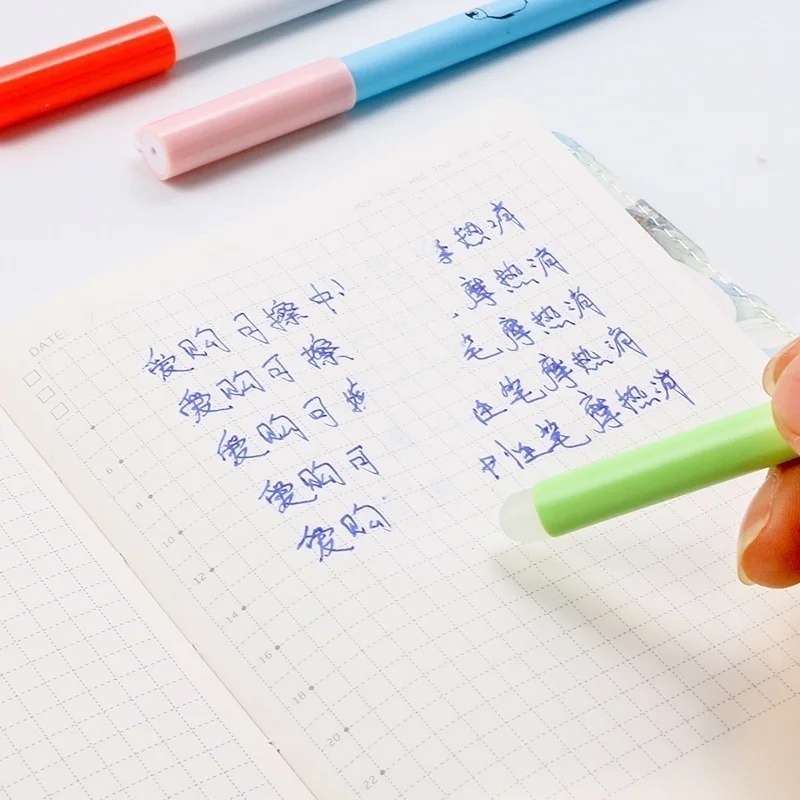 Mon Tues Wed Thu Fri Sat Sun
DATE:
爱购可擦中 热消
爱购可擦 摩热消
爱购可 笔摩热消
爱购可 性笔摩热消
爱购 中性笔摩热消
6
8
10
12
14
16
18
20
22